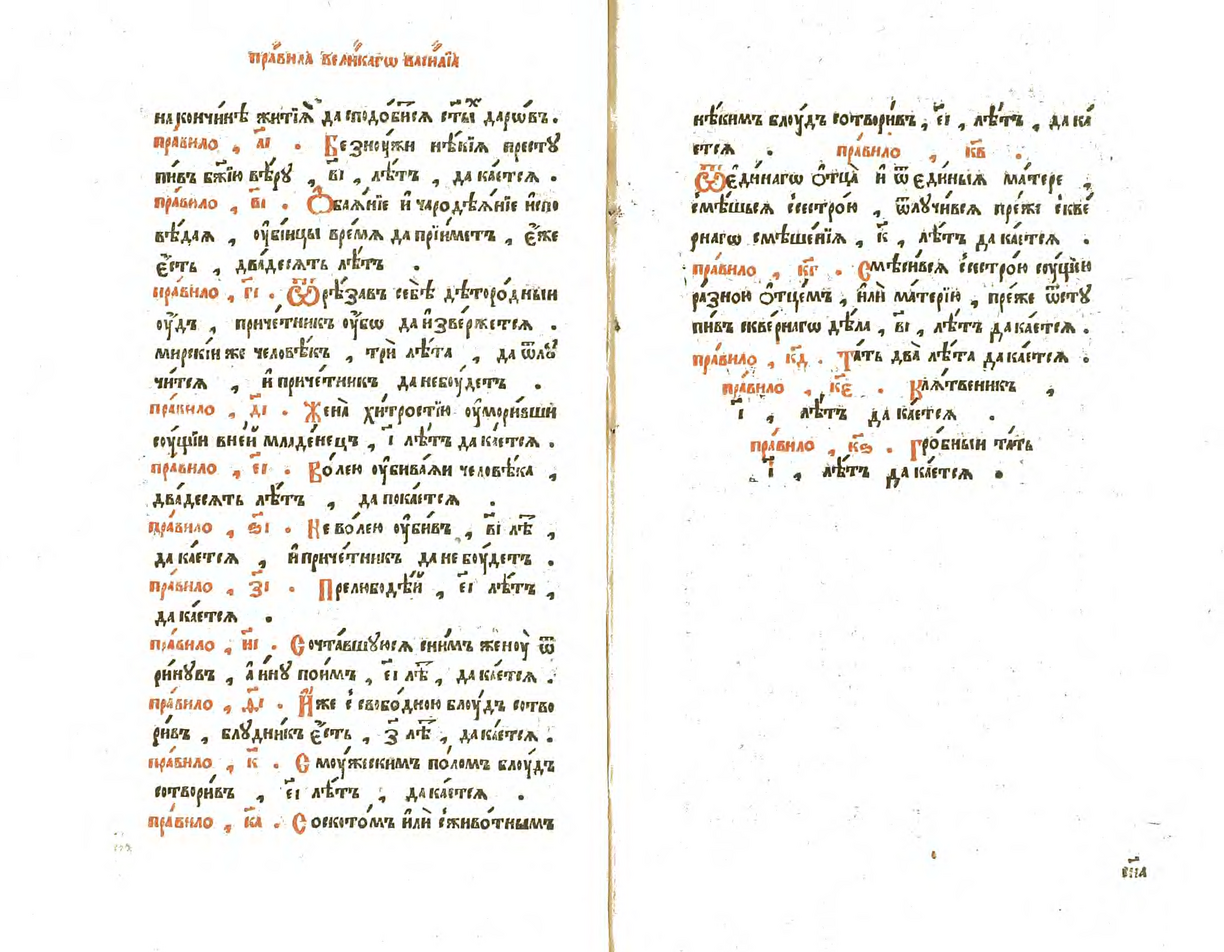 пра́вила вели́кагѡ васи́лїѧ
на кончи́нѣ житїѧ̀ да сподо́бисѧ ст҃ы́хъ даро́въ .
пра́вило , а҃і . Без ноу́жи нѣ́кїѧ престꙋ
пи́въ бж҃їю вѣ́рꙋ , в҃і , лѣ́тъ , да ка́етсѧ .
пра́вило , в҃і . Ѻ҆баѧ́нїе и҆ чародѣѧ́нїе и҆спо
вѣ́даѧ , оу҆бі́йцы вре́мѧ да прїи́метъ , є҆́же
є҆́сть , два́десѧть лѣ́тъ .
пра́вило , г҃і . Ѿрѣ́завъ себѣ̀ дѣторо́дныи
оу҆́дъ , приче́тникъ оу҆́бѡ да и҆зве́ржетсѧ .
мирскі́и же человѣ́къ , трѝ лѣ́та , да ѿлꙋ
чи́тсѧ , и҆ приче́тникъ да не боу́детъ .
пра́вило , д҃і . Жена̀ хи́тростїю оу҆мори́вши
соу́щїи в не́й младе́нецъ , і҃ лѣ́тъ да ка́етсѧ .
пра́вило , є҃і . Во́лею оу҆бива́ѧи человѣ́ка ,
два́десѧть лѣ́тъ , да пока́етсѧ .
пра́вило , ѕ҃і . Не во́лею оу҆би́въ , в҃і лѣ́т ,
да ка́етсѧ , и҆ приче́тникъ да не боу́детъ .
пра́вило , з҃і . Прелюбодѣ́й , є҃і лѣ́тъ ,
да ка́етсѧ .
пра́вило , и҃і . Сочта́вшꙋюсѧ с ни́мъ женоу̀ ѿ
ри́нꙋвъ , а҆ и҆́нꙋ пои́мъ , є҃і лѣ́т , да ка́етсѧ .
пра́вило , ѳ҃і . И҆́же с̾ свобо́дною блоу́дъ сотво
ри́въ , блꙋдни́къ є҆́сть , з҃ лѣ́т , да ка́етсѧ .
пра́вило , к҃ . С моу́жескимъ по́ломъ блоу́дъ
сотвори́въ , є҃і лѣ́тъ , да ка́етсѧ .
пра́вило , к҃а . Со ското́мъ и҆лѝ с̾ живо́тнымъ
нѣ́кимъ блоу́дъ сотвори́въ , є҃і , лѣ́тъ , да ка́
етсѧ . пра́вило , к҃в .
Ѿ є҆ди́нагѡ ѻ҆тца̀ и҆ ѿ є҆ди́ныѧ ма́тере ,
смѣ́шьсѧ с̾ сестро́ю , ѿлучи́всѧ пре́же скве́
рнагѡ смѣше́нїѧ , к҃ , лѣ́тъ да ка́етсѧ .
пра́вило , к҃г . Смѣси́всѧ с̾ сестро́ю соу́щїю
ра́зною ѻ҆тце́мъ , и҆лѝ ма́терїю , пре́же ѿстꙋ
пи́въ скве́рнагѡ дѣ́ла , в҃і , лѣ́тъ да ка́етсѧ .
пра́вило , к҃д . Та́ть два̀ лѣ́та да ка́етсѧ .
пра́вило , к҃є . Клѧ́твеникъ ,
і҃ , лѣ́тъ да ка́етсѧ .
пра́вило , к҃ѕ . Гро́бныи та́ть
і҃ , лѣ́тъ да ка́етсѧ .